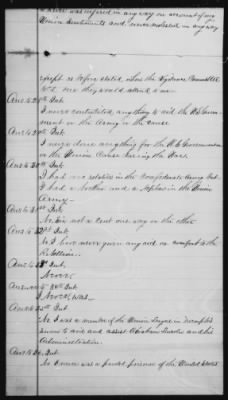 I never was injured in any way on account of my
Union sentiments and never molested in any way
except as before stated, when the Vigilance Committee
told me they would attend to me
Ans to 28th Int
I never contributed anything to aid the U.S. Govern-
ment or the Army or the cause
Ans to 29th Int
I never done anything for the U.S. Government
or the Union Cause during the War.
Ans to 30th Int
I had no relatives in the Confederate Army but
I had a brother and a nephew in the Union
Army
Ans to 31st Int.
No Sir not a cent one way or the other
Ans to 32nd Int
No I have never given any aid or comfort to the
Rebellion.
Ans to Int.
Never
Answer to Int
I Never was
Ans to Int
No. I was a member of the Union League in Memphis
sworn to aid and assist Abraham Lincoln and his
Administration.
Ans to Int
No I never was a paroled prisoner of the United States